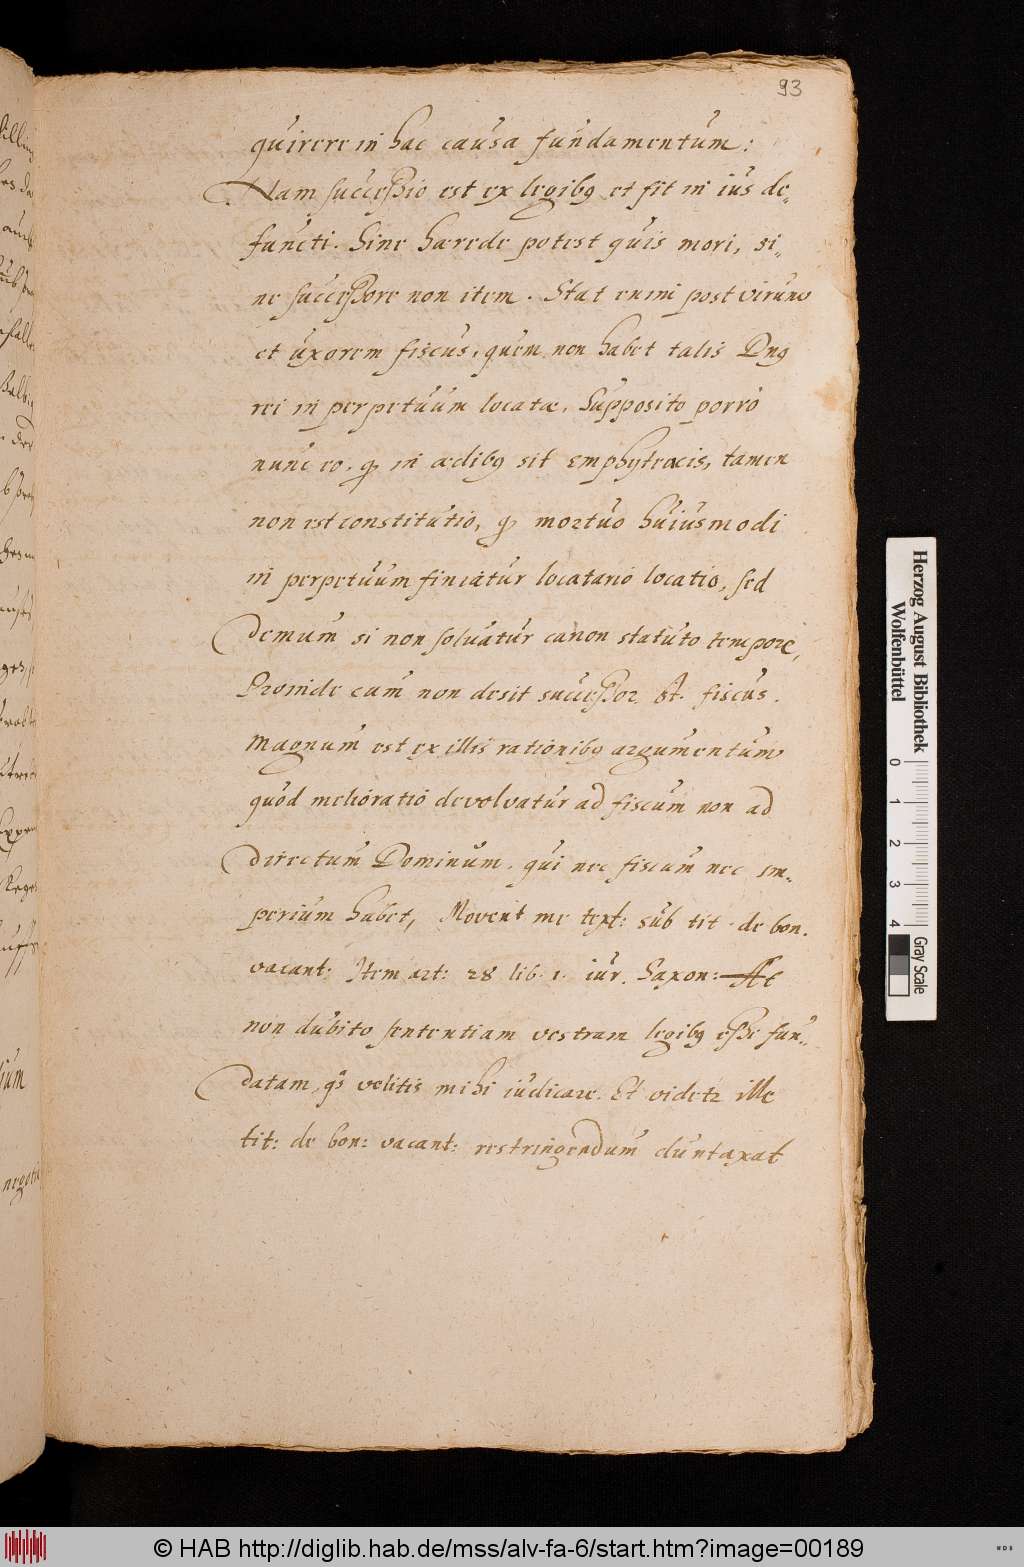 93
quirere in hac causa fundamentum:
Nam successio est ex legibꝯ et fit in ius de„
functi. Sine hærede potest quis mori, si„
ne successore non item. Stat enim post virum
et uxorem fiscus, quem non habet talis Dnꝯ
rei in perpetuum locatæ. Supposito porro
nunc eo. ꝙ in ædibꝯ sit Emphyteosis, tamen
non est constitutio, ꝙ mortuo huiusmodi
in perpetuum finiatur locatario locatio, sed
demum si non solvatur canon statuto tempore,
Proinde cum non desit successor st. fiscus.
Magnum est ex illis rationibꝯ argumentum
quòd melioratio devolvatur ad fiscum non ad
directum Dominum. qui nec fiscum nec im„
perium habet, Movent me text: sub tit. de bon.
vacant. Item art: 28 lib. 1. iur. Saxon: At
non dubito sententiam vestram legibꝯ esse fun„
datam, velitis mihi iudicare. Et videtr ille
tit: de bon: vacant: restringendum duntaxat
Herzog August Bibliothek
Wolfenbüttel
0 1 2 3 4
Gray Scale
© HAB http://diglib.hab.de/mss/alv-fa-6/start.htm?image=00189